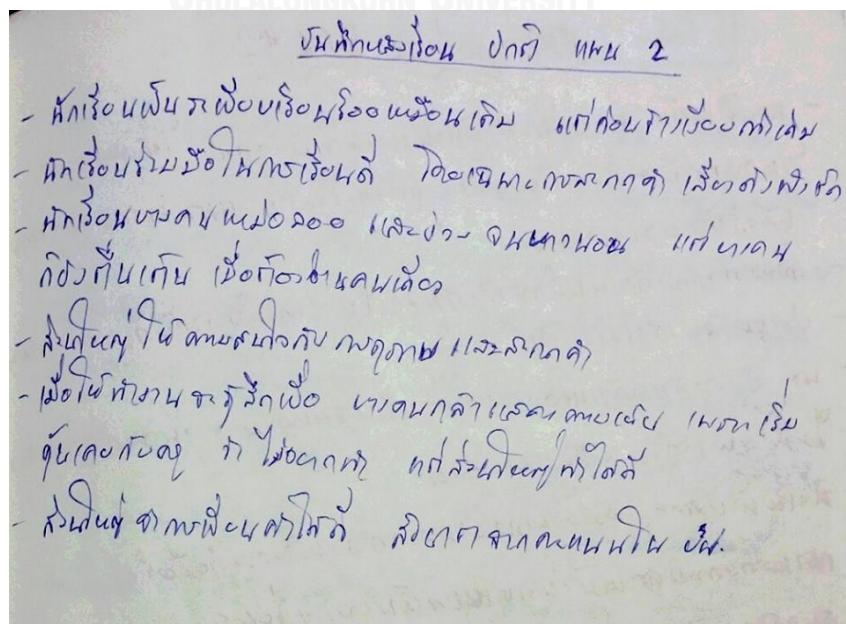 CHULALONGKORN UNIVERSITY
บันทึกหลังเรียน ปกติ แผน 2
- นักเรียนเป็นระเบียบเรียบร้อยเหมือนเดิม แต่ค่อนข้างเงียบกว่าเดิม
- นักเรียนร่วมมือในการเรียนดี โดยเฉพาะการสะกดคำ เสียงดังฟังชัด
- นักเรียนบางคนเหม่อลอย และง่วง จนหาวนอน แต่บางคน
ก็ยังตื่นเต้น เมื่อต้องอ่านคนเดียว
- ส่วนใหญ่ให้ความสนใจกับการดูภาพ และสะกดคำ
- เมื่อให้ทำงานจะรู้สึกเบื่อ บางคนกล้าแสดงความเห็น เพราะเริ่ม
คุ้นเคยกับครู ว่าไม่อยากทำ แต่ส่วนใหญ่ทำได้ดี
- ส่วนใหญ่ การเขียนทำได้ดี จากคะแนนใน